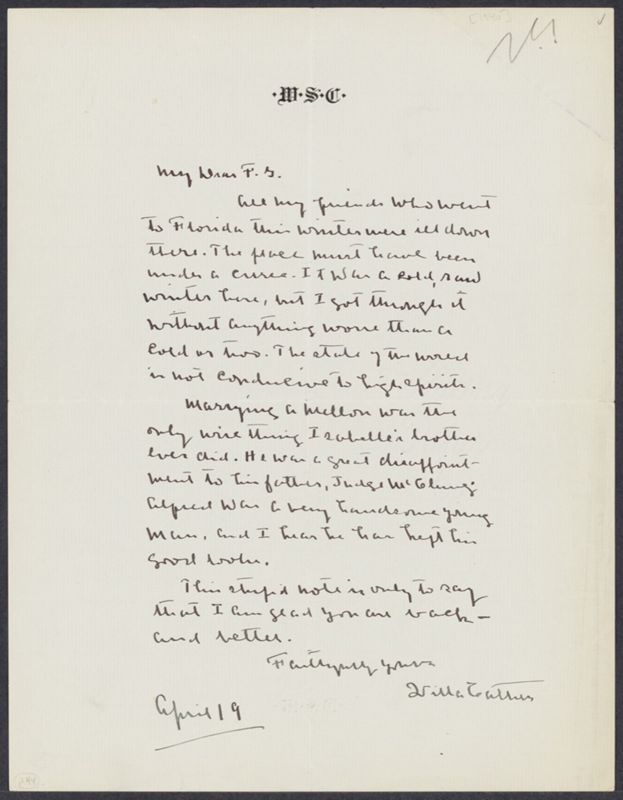 [1940]
·W·S·C·
My Dear F. G.
All my friends who went
to Florida this winter were ill down
there. The place must have been
under a curse. It was a cold, raw
winter here, but I got through it
without anything worse than a
cold or two. The state of the world
is not conducive to high spirits.
Marrying a Mellon was the
only wise thing Isabelle's brother
ever did. He was a great disappoint-
ment to his father, Judge McClung.
Alfred was a very handsome young
man, and I hear he has kept his
good looks.
This stupid note is only to say
that I am glad you are back—
and better.
Faithfully yours
Willa Cather
April 19